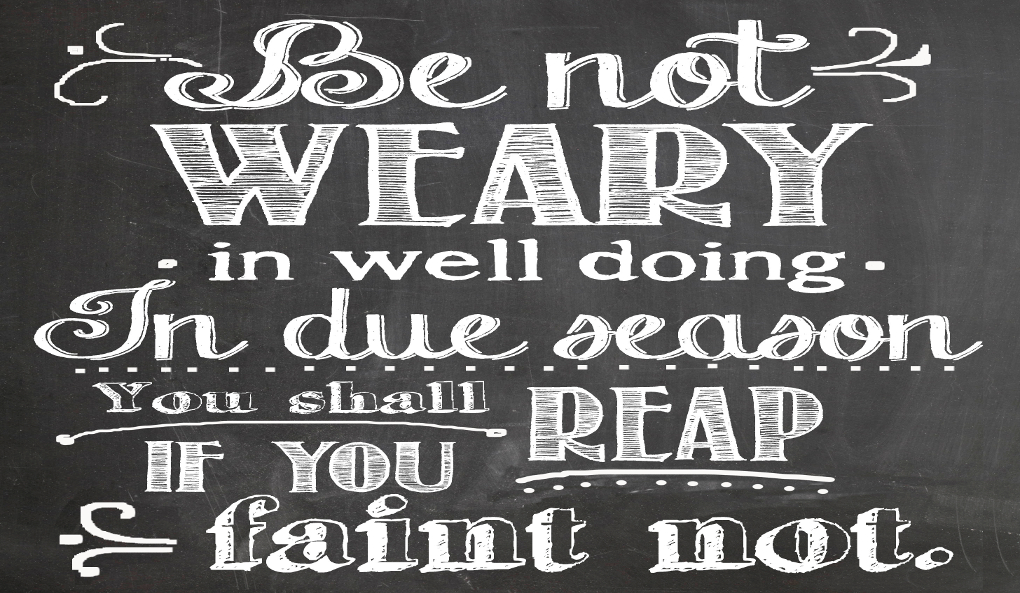 Be not
WEARY
in well doing
In due season
You shall REAP
IF YOU
faint not.